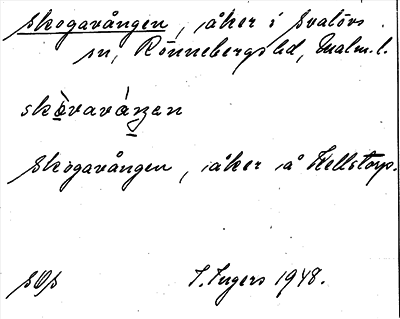 Skogavången, åker i Svalövs
sn, Rönnebergs hd, Malm. l.
skòvavàŋen
Skogavången, åker å Källstorp.
I. Ingers 1948.